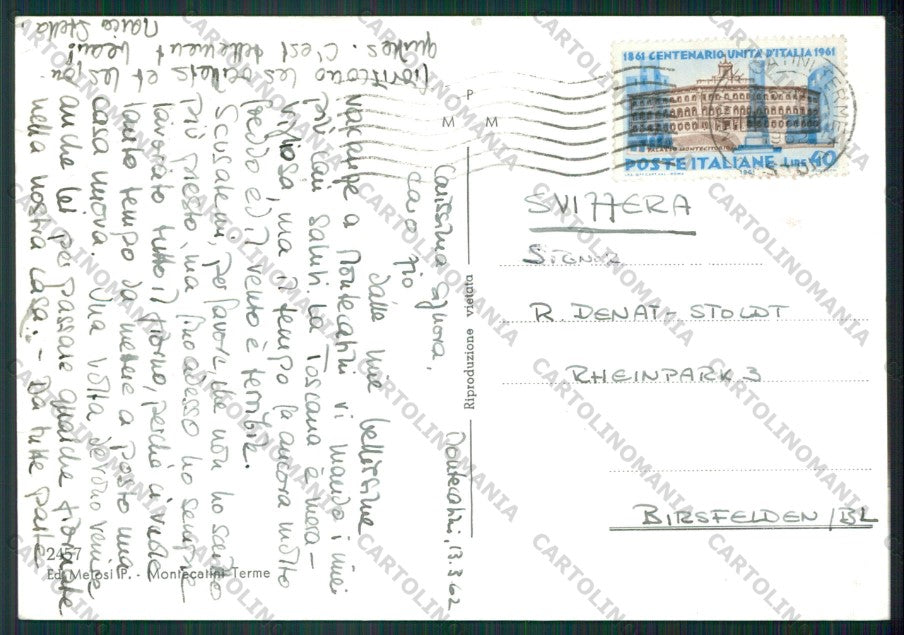 1861 CENTENARIO UNITÀ D'ITALIA 1961
PALAZZO MONTECITORIO
POSTE ITALIANE LIRE 40
P
M M
SVIZZERA
SIGNOR
R. DENAT-STOLDT
RHEINPARK 3
BIRSFELDEN/BL
Riproduzione vietata
Montecatini, 13.3.62
Carissima signora,
caro zio
Dalle mie bellissime
vacanze a Montecatini vi mando i miei
più cari saluti. La Toscana è mera-
vigliosa, ma il tempo fa ancora molto
freddo ed il vento è terribile.
Scusatemi, per favore, che non ho scritto
più presto, ma fino adesso ho sempre
lavorato tutto il giorno, perchè ci vuole
tanto tempo da mettere a posto una
casa nuova. Una volta devono venire
anche Lei per passare qualche giornate
nella nostra casa. - Da tutte parte
fioriscono les oeillets et les jon-
quilles. C'est tellement beau!
Stella
2457
Ed. Melosi P. - Montecatini Terme
CARTOLINOMANIA